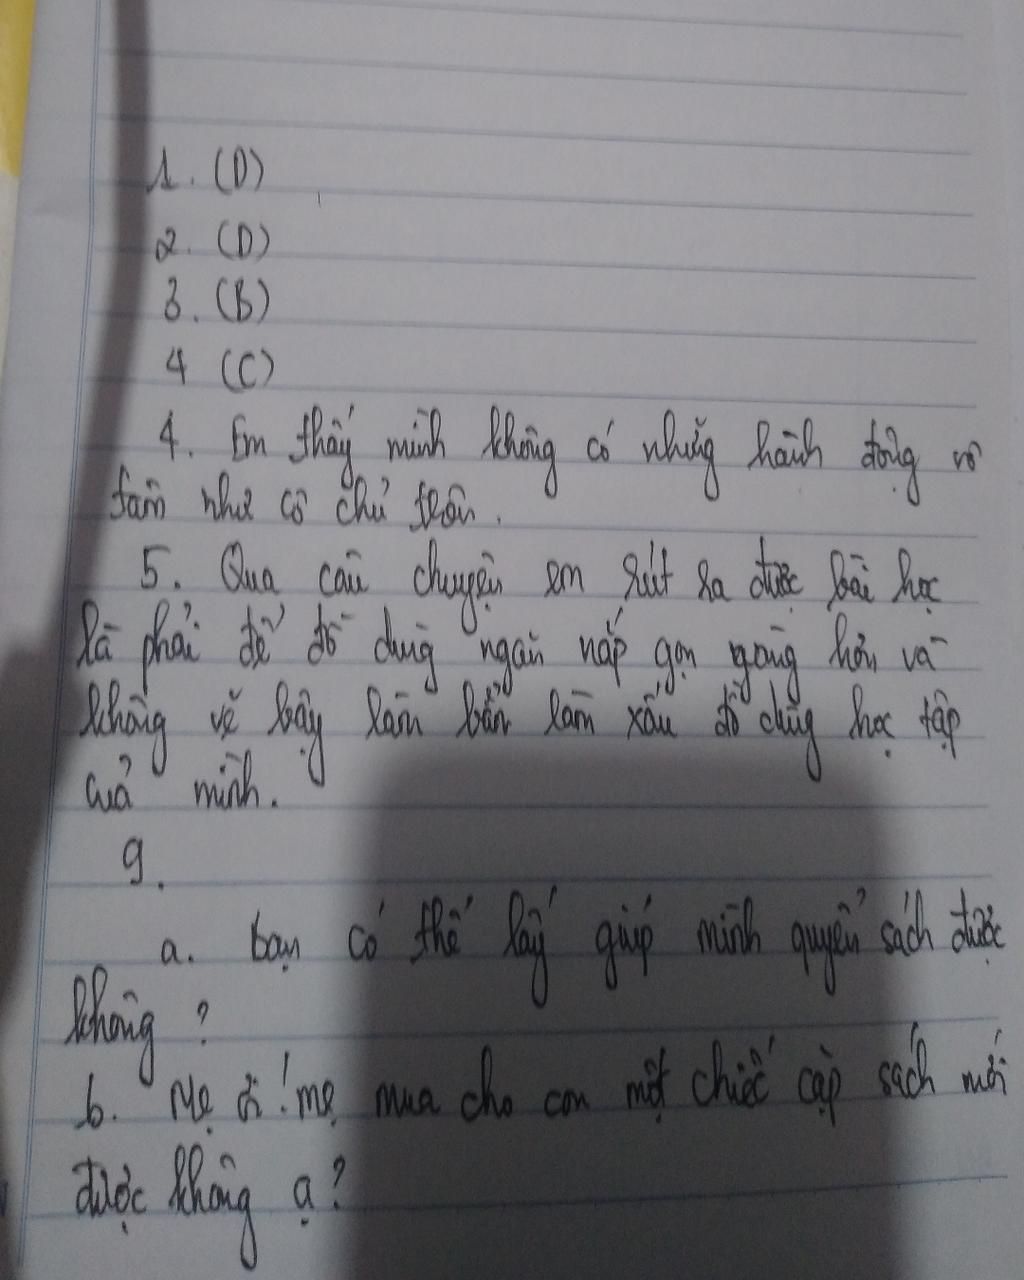 1. (D)
2. (D)
3. (B)
4 (C)
4. Em thấy mình không có những hành động vô
tâm như cô chủ trên.
5. Qua câu chuyện em rút ra được bài học
là phải để đồ dùng ngăn nắp gọn gàng hơn và
không vẽ bậy làm bẩn làm xấu đồ dùng học tập
của mình.
9.
a. bạn có thể lấy giúp mình quyển sách được
không ?
b. Mẹ ơi ! mẹ mua cho con một chiếc cặp sách mới
được không ạ ?